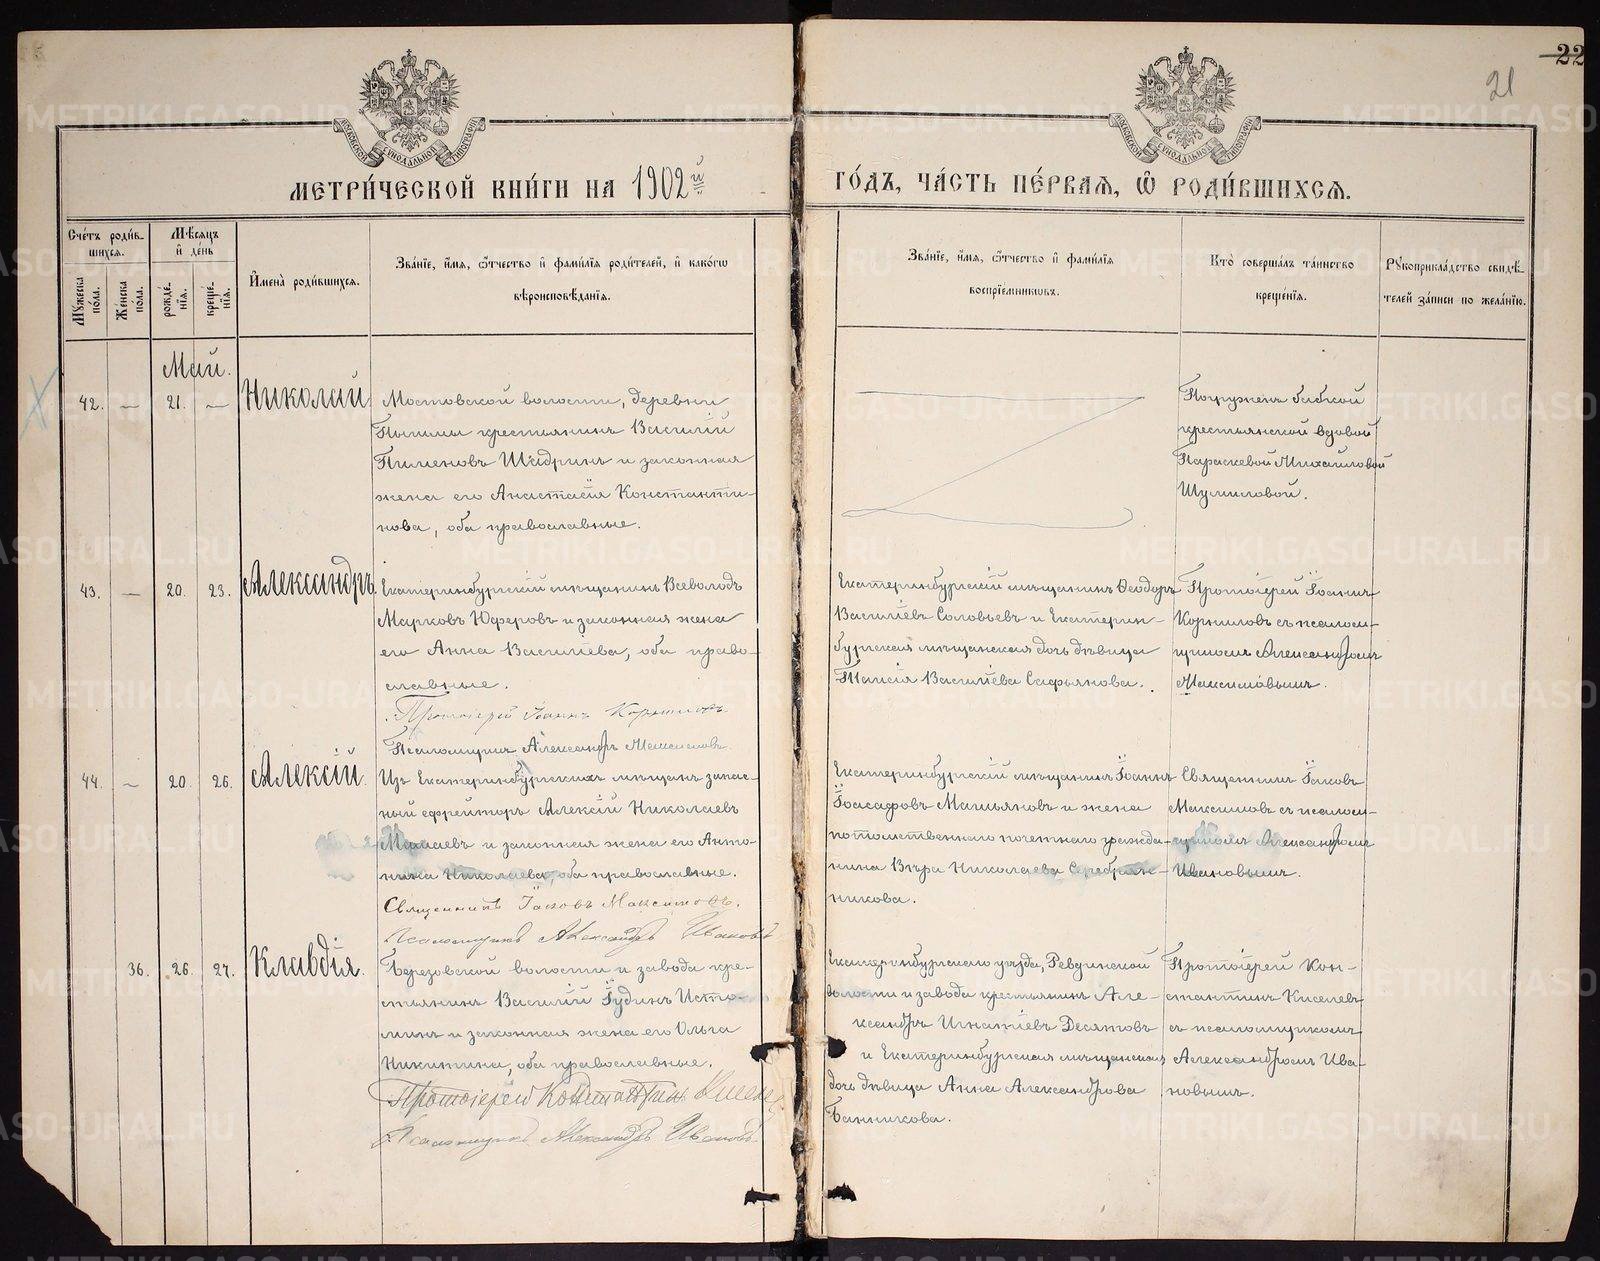 22
21
МЕТРИ́ЧЕСКОЙ КНИ́ГИ НА 1902й
ГО́ДЪ, ЧА́СТЬ ПЕ́РВАѦ, Ѡ҆ РОДИ́ВШИХСѦ.
Сче́тъ роди́в-
шихсѧ.
Мꙋ́жеска по́ла.
Же́нска по́ла.
Мѣ́сѧцъ
и҆ де́нь
рожде́-
нїѧ.
креще́-
нїѧ.
И҆мена̀ роди́вшихсѧ.
Зва́нїе, и҆́мѧ, ѻ҆́тчество и҆ фами́лїѧ роди́телей, и҆ како́гѡ
вѣроисповѣ́данїѧ.
Зва́нїе, и҆́мѧ, ѻ҆́тчество и҆ фами́лїѧ
воспрїе́мниковъ.
Кто̀ соверша́лъ та́инство
креще́нїѧ.
Рꙋкоприкла́дство свидѣ́-
телей за́писи по жела́нїю.
Май.
42. — 21. — Николай
Мостовской волости, деревни
крестьянинъ Василій
Пименовъ Шадринъ и законная
жена его Анастасія Константи-
нова, оба православные.
Погруженъ бабкой
крестьянской вдовой
Параскевой Михайловой
Шумиловой.
43. — 20. 23. Александръ
Екатеринбургскій мѣщанинъ Всеволодъ
Марковъ Юферовъ и законная жена
его Анна Васильева, оба право-
славные.
Протоіерей Іоаннъ Корниловъ
Псаломщикъ Александръ Максимовъ.
Екатеринбургскій мѣщанинъ Ѳеодоръ
Васильевъ Соловьевъ и Екатерин-
бургская мѣщанская дочь дѣвица
Таисія Васильева Сафьянова.
Протоіерей Іоаннъ
Корниловъ съ псалом-
щикомъ Александромъ
Максимовымъ.
44. — 20. 26. Алексій
Изъ Екатеринбургскихъ мѣщанъ запас-
ный ефрейторъ Алексій Николаевъ
и законная жена его Анто-
нина Николаева, оба православные.
Священникъ Іаковъ Максимовъ.
Псаломщикъ Александръ Ивановъ
Екатеринбургскій мѣщанинъ Іоаннъ
Іоасафовъ и жена
потомственнаго почетнаго гражда-
нина Вѣра Николаева Серебрян-
никова.
Священникъ Іаковъ
Максимовъ съ псалом-
щикомъ Александромъ
Ивановымъ.
36. 26. 27. Клавдія.
Березовской волости и завода кре-
стьянинъ Василій Исто-
минъ и законная жена его Ольга
Никитина, оба православные.
Протоіерей Константинъ
Псаломщикъ Александръ Ивановъ
Екатеринбургскаго уѣзда, Ревдинской
волости и завода крестьянинъ Але-
ксандръ Игнатіевъ Десятовъ
и Екатеринбургская мѣщанская
дочь дѣвица Анна Александрова
Банникова.
Протоіерей Кон-
стантинъ Киселевъ
съ псаломщикомъ
Александромъ Ива-
новымъ.